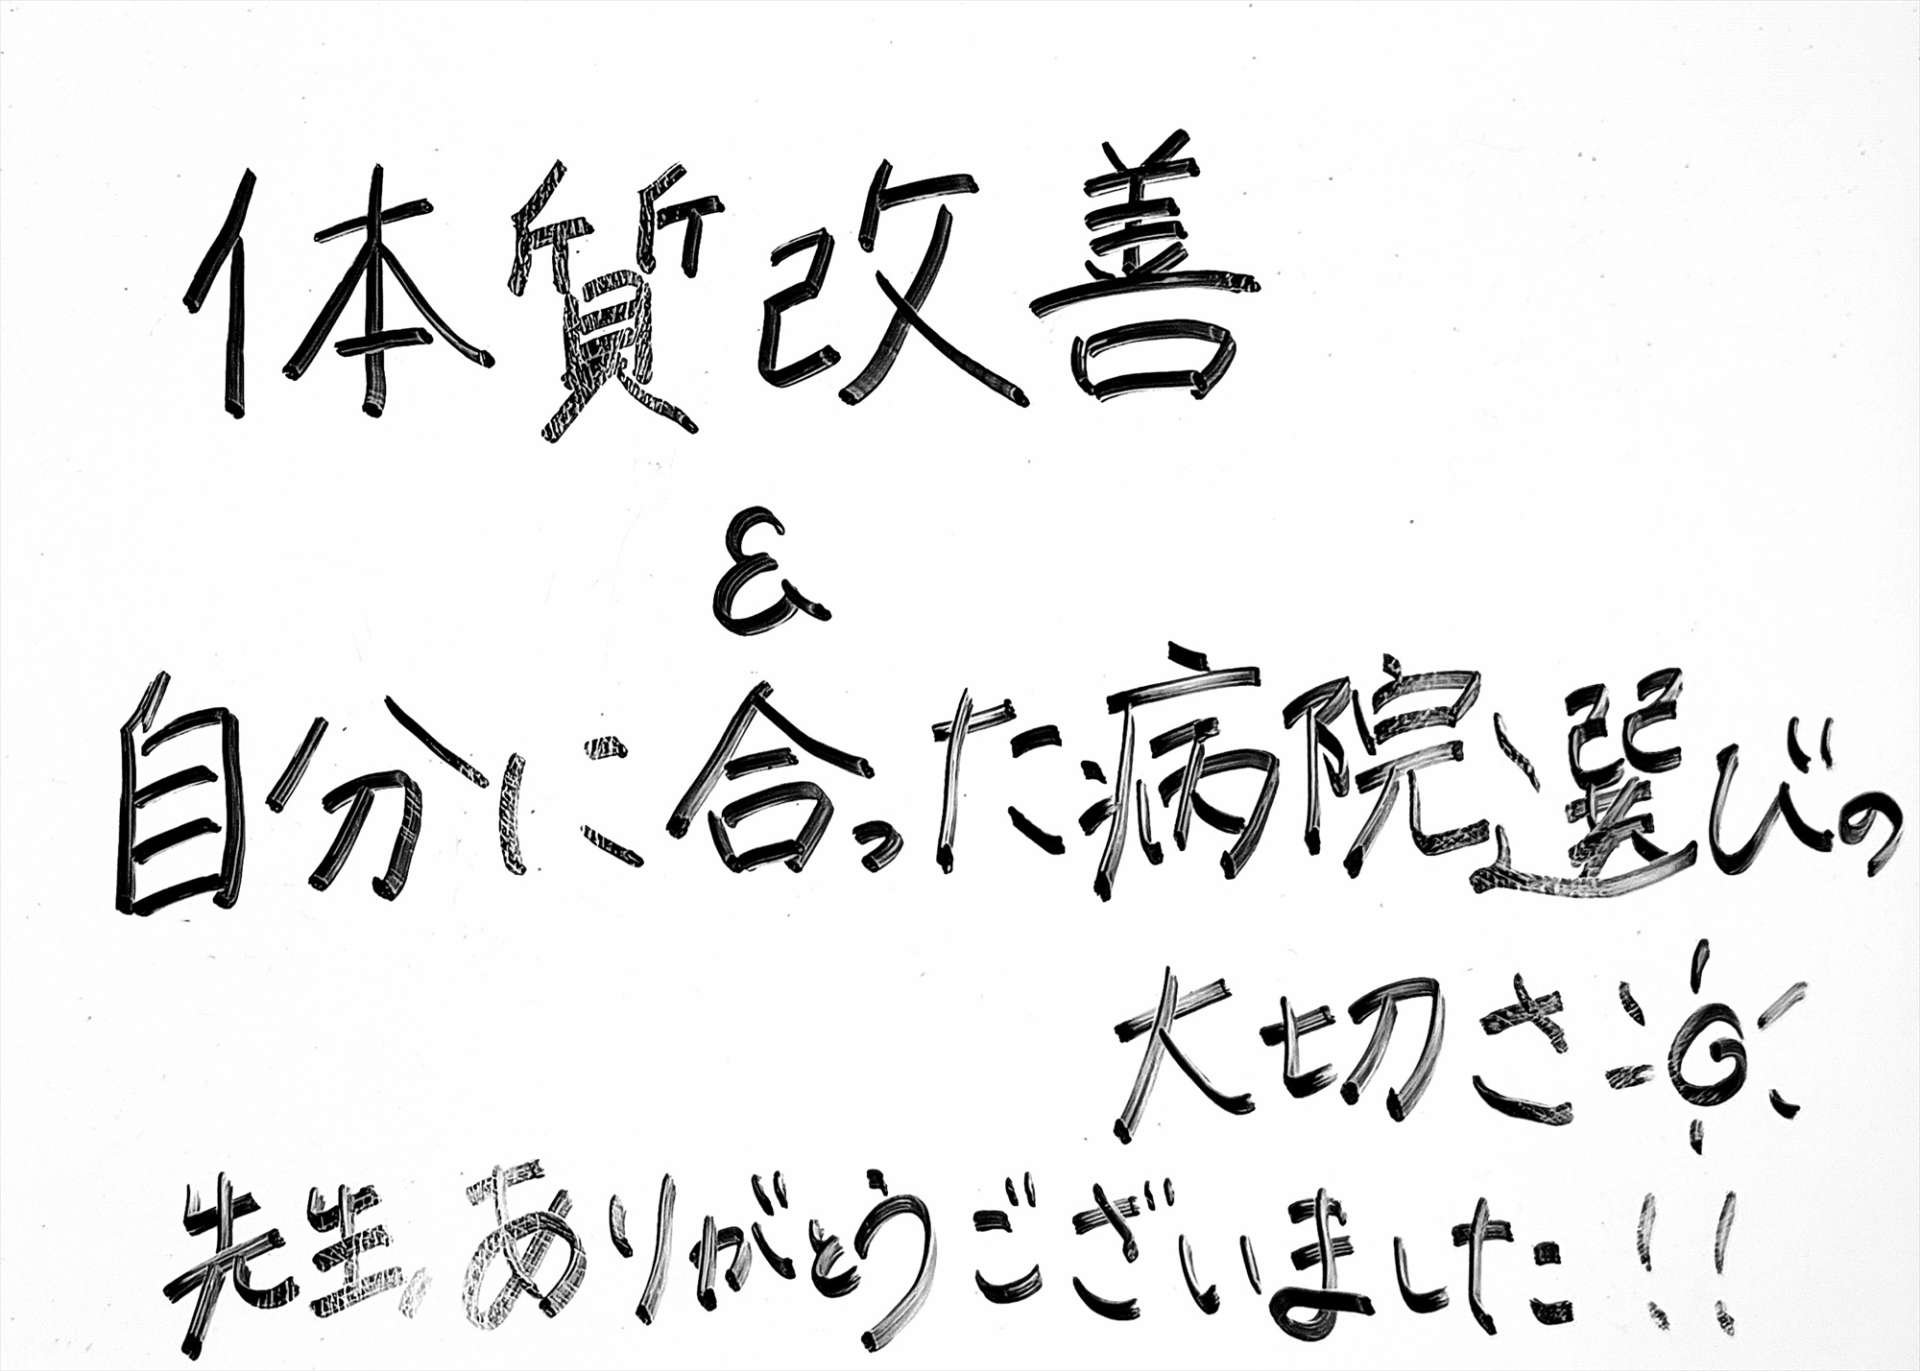 体質改善
&
自分に合った病院選びの
大切さ
先生、ありがとうございました!!